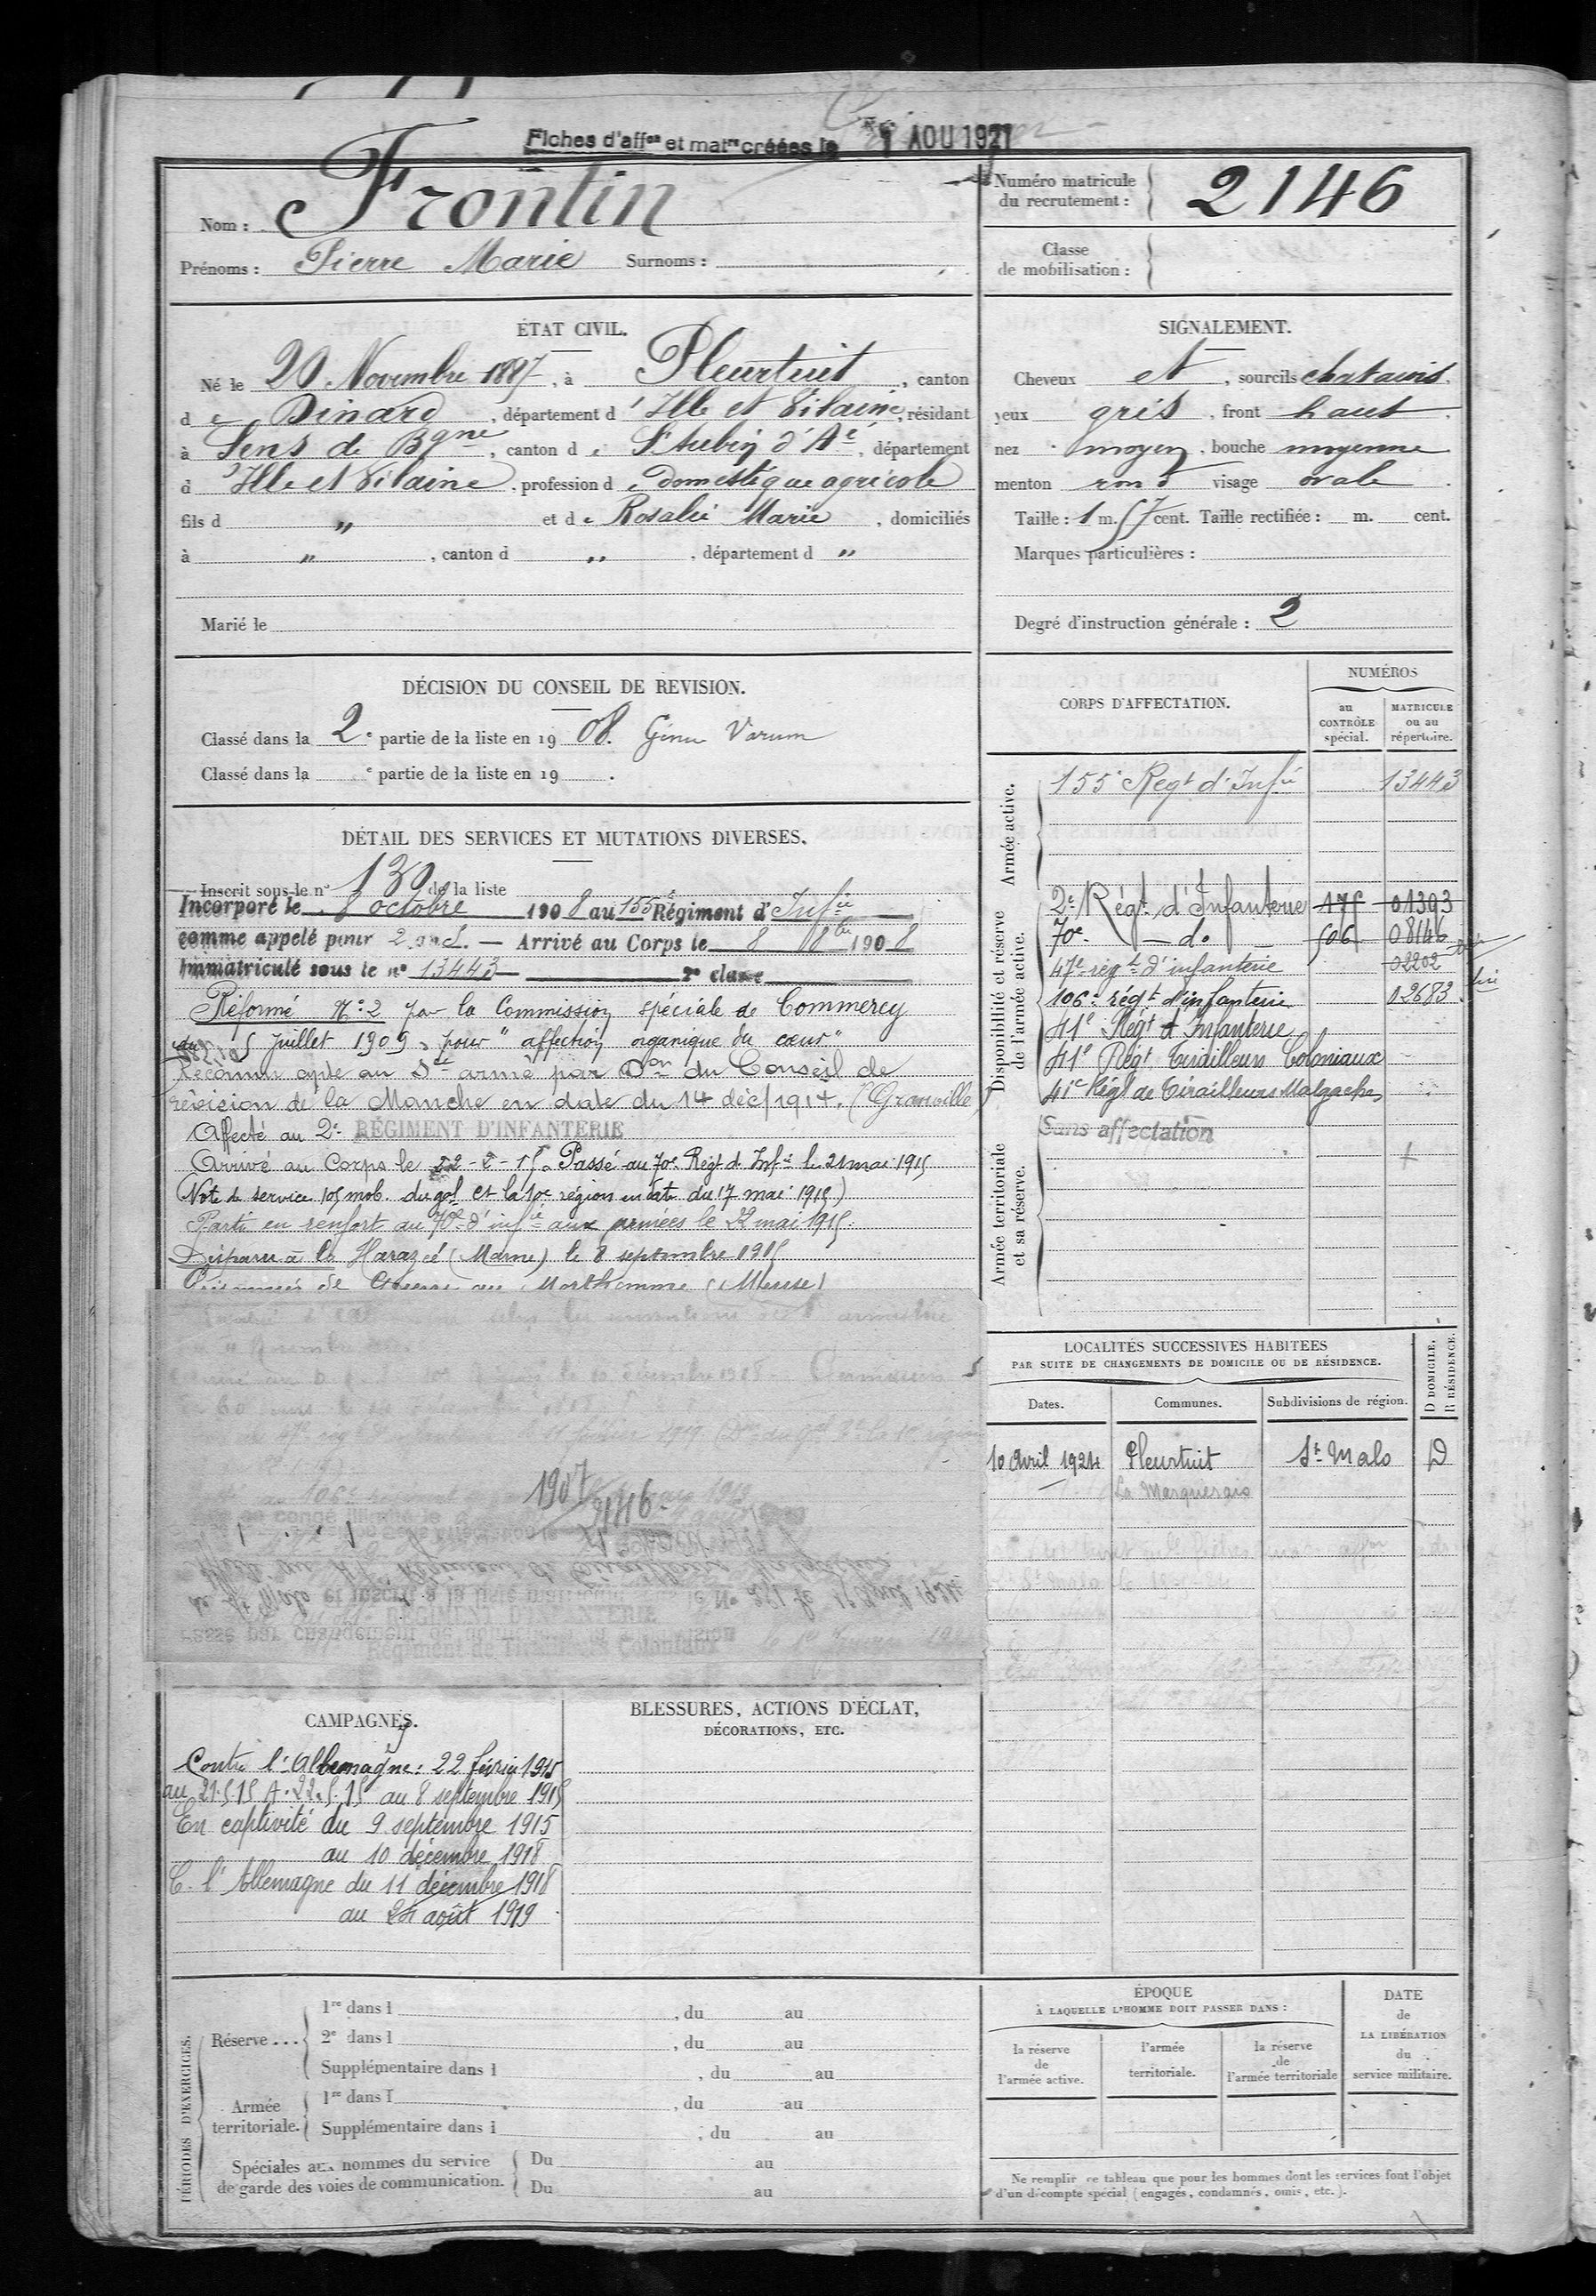 Fiches d'aff^on et mat^re créées le 1 AOU 1927
Nom : Frontin
Prénoms : Pierre Marie Surnoms :
Numéro matricule du recrutement : 2146
Classe de mobilisation :
ÉTAT CIVIL.
Né le 20 Novembre 1887, à Pleurtuit, canton
de Dinard, département d'Ille et Vilaine, résidant
à Sens de Bgne, canton de St Aubin d'Aé, département
d'Ille et Vilaine, profession de Domestique agricole
fils d " et de Rosalie Marie, domiciliés
à ", canton d ", département d "
Marié le
SIGNALEMENT.
Cheveux et, sourcils chatains.
yeux gris, front haut,
nez moyen, bouche moyenne
menton rond visage ovale.
Taille : 1 m. 57 cent. Taille rectifiée : m. cent.
Marques particulières :
Degré d'instruction générale : 2
DÉCISION DU CONSEIL DE REVISION.
Classé dans la 2e partie de la liste en 1908. Genu Varum
Classé dans la e partie de la liste en 19 .
DÉTAIL DES SERVICES ET MUTATIONS DIVERSES.
Inscrit sous le n° 130 de la liste
Incorporé le 8 octobre 1908 au 155e Régiment d'Infie
comme appelé pour 2 ans. — Arrivé au Corps le 8 8bre 1908
Immatriculé sous le n° 13443 — 2e classe
Réformé N° 2 par la Commission spéciale de Commercy
du 5 Juillet 1909, pour "affection organique du cœur"
Reconnu apte au Sce armé par Don du Conseil de
révision de la Manche en date du 14 déc/1914. (Granville)
Affecté au 2e RÉGIMENT D'INFANTERIE
Arrivé au Corps le 22-2-15. Passé au 70e Régt d. Infie le 21 mai 1915
(Note de service 105 mob. du gal Ct la 10e région en date du 17 mai 1915)
Parti en renfort au 70e d'infie aux armées le 22 mai 1915.
Disparu à la Harazée (Marne) le 8 septembre 1915
Prisonnier de Guerre au Morthomme (Meuse)
1907
2146
CORPS D'AFFECTATION.
NUMÉROS
au CONTRÔLE spécial.
MATRICULE ou au répertoire.
Armée active.
155e Regt d'Infie 13443
Disponibilité et réserve de l'armée active.
2e Régt d'Infanterie 175 01393
70e — do — 506 08146
47e régt d'infanterie 02202
106e régt d'infanterie 02683
41e Régt d'Infanterie
41e Régt Tirailleurs Coloniaux
41e Régt de Tirailleurs Malgaches
Armée territoriale et sa réserve.
Sans affectation
LOCALITÉS SUCCESSIVES HABITÉES
PAR SUITE DE CHANGEMENTS DE DOMICILE OU DE RÉSIDENCE.
Dates. Communes. Subdivisions de région. D DOMICILE. R RÉSIDENCE.
10 Avril 1924 Pleurtuit St Malo D
CAMPAGNES.
Contre l'Allemagne : 22 février 1915
au 21.5.15 A. 22.5.15 au 8 septembre 1915
En captivité du 9 septembre 1915
au 10 décembre 1918
C. l'Allemagne du 11 décembre 1918
au 24 août 1919
BLESSURES, ACTIONS D'ÉCLAT,
DÉCORATIONS, ETC.
PÉRIODES D'EXERCICES.
Réserve ...
1re dans l , du au
2e dans l , du au
Supplémentaire dans l , du au
Armée territoriale.
1re dans l , du au
Supplémentaire dans l , du au
Spéciales aux hommes du service
de garde des voies de communication.
Du au
Du au
ÉPOQUE
À LAQUELLE L'HOMME DOIT PASSER DANS :
la réserve de l'armée active.
l'armée territoriale.
la réserve de l'armée territoriale
DATE de LA LIBÉRATION du service militaire.
Ne remplir ce tableau que pour les hommes dont les services font l'objet
d'un décompte spécial (engagés, condamnés, omis, etc.).